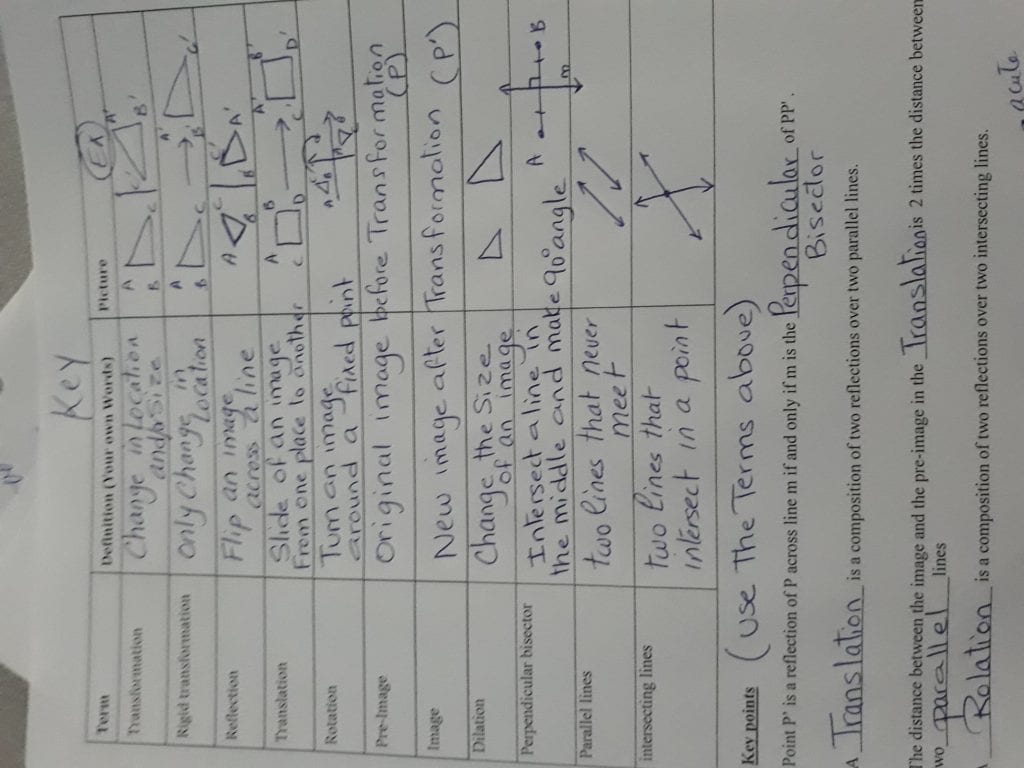 Key
Term Definition (Your own Words) Picture EX
Transformation Change in Location and/or Size A B C A' B' C'
Rigid transformation only Change in Location A B C A' B' C'
Reflection Flip an image across a line A B C A' B' C'
Translation Slide of an image From one place to another A B C D A' B' C' D'
Rotation Turn an image around a fixed point
Pre-Image Original image before Transformation (P)
Image New image after Transformation (P')
Dilation Change the Size of an image
Perpendicular bisector Intersect a line in the middle and make 90° angle A B m
Parallel lines two lines that never meet
intersecting lines two lines that intersect in a point
Key points (use The Terms above)
Point P' is a reflection of P across line m if and only if m is the Perpendicular Bisector of PP'.
A Translation is a composition of two reflections over two parallel lines.
The distance between the image and the pre-image in the Translation is 2 times the distance between
wo parallel lines
Rotation is a composition of two reflections over two intersecting lines.
acute